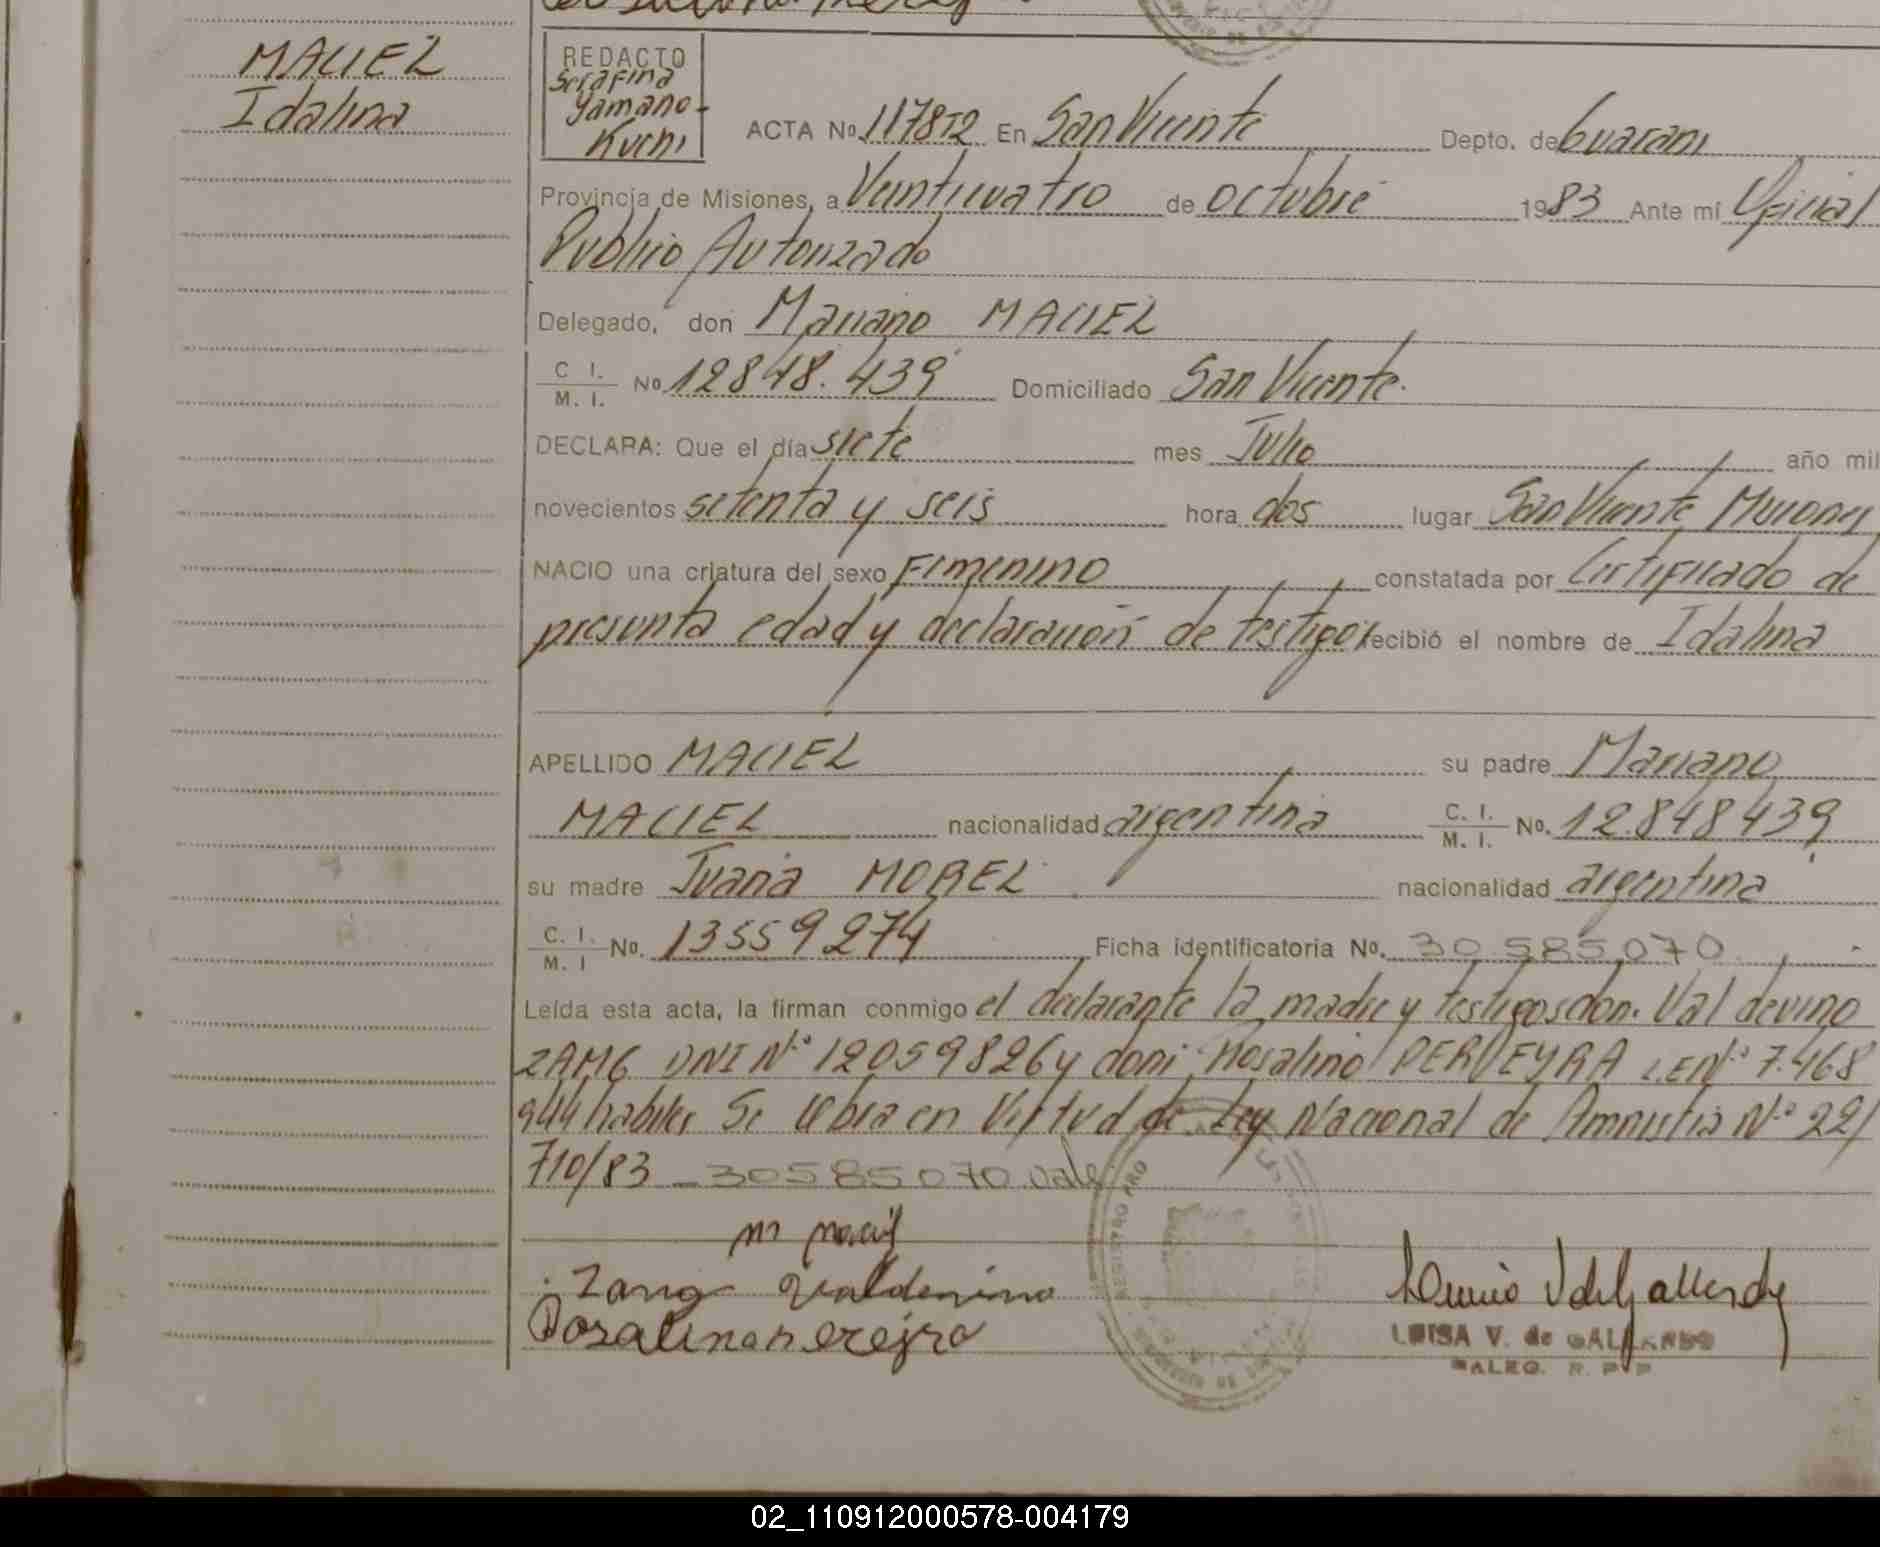 MACIEL
Idalina
REDACTO
Serafina
Yamano-
Kuchi
ACTA No. 1178T2 En San Vicente Depto. de Guarani
Provincia de Misiones, a Veinticuatro de octubre 1983 Ante mi Oficial
Publico Autorizado
Delegado, don Mariano MACIEL
C I. M. I. No 12848.439 Domiciliado San Vicente.
DECLARA: Que el día siete mes Julio año mil
novecientos setenta y seis hora dos lugar San Vicente Misiones
NACIO una criatura del sexo Femenino constatada por Certificado de
presunta edad y declaración de testigos recibió el nombre de Idalina
APELLIDO MACIEL su padre Mariano
MACIEL nacionalidad argentina C. I. M. I. No. 12.848439
su madre Juana MOREL nacionalidad argentina
C. I. M. I No. 13559274 Ficha identificatoria No. 30.585.070
Leída esta acta, la firman conmigo el declarante la madre y testigos don. Valdevino
ZANG DNI Nº 12059826 y don: Rosalino PEREYRA L.E Nº 7.468
944 habiles Se labra en Virtud de Ley Nacional de Amnistia Nº 22/
710/83 - 30585070 vale
Zang Valdevino
Rosalino Pereyra
LUISA V. de GALLARDO